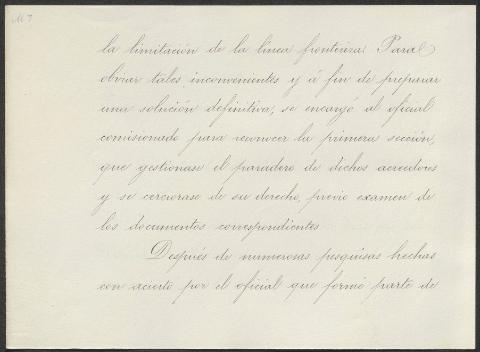 la limitación de la línea fronteriza. Para
obviar tales inconvenientes y á fin de preparar
una solución definitiva, se encargó al oficial
comisionado para reconocer la primera sección,
que gestionase el paradero de dichos acreedores
y se cerciorase de su derecho, previo examen de
los documentos correspondientes.
Después de numerosas pesquisas hechas
con acierto por el oficial que formó parte de